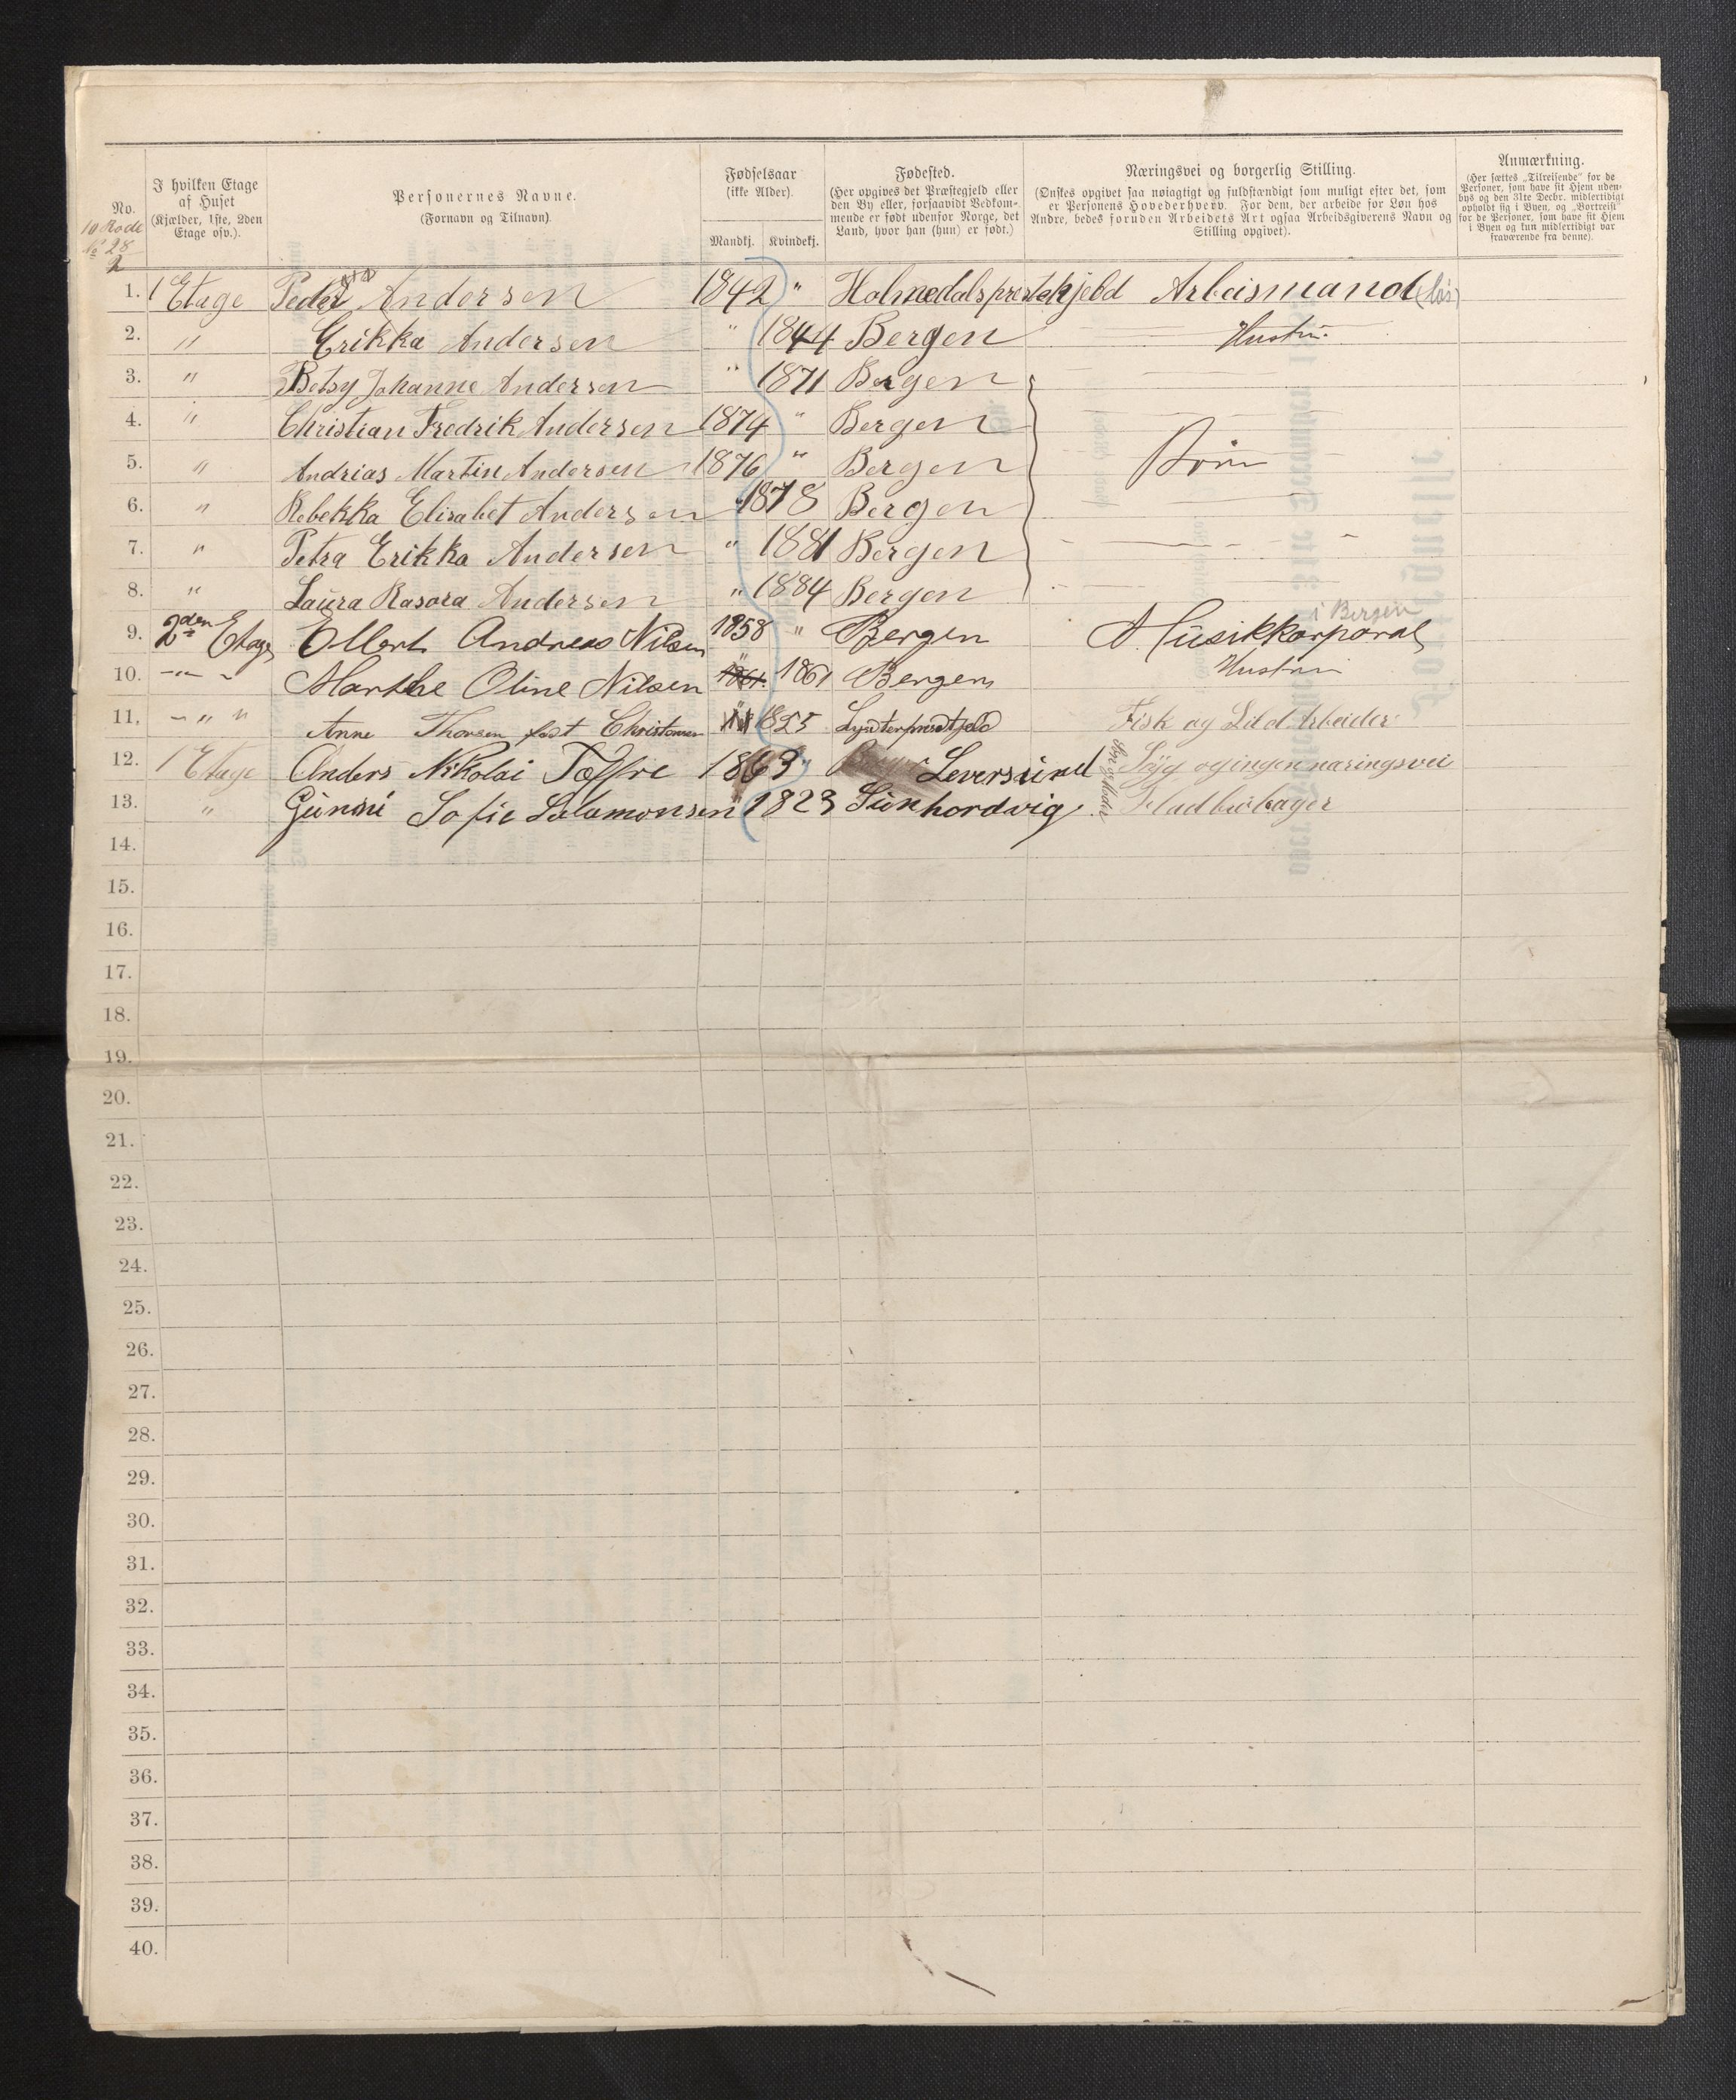 No.
10 Rode
No 28
2
I hvilken Etage af Huset
(Kjælder, 1ste, 2den Etage osv.).
Personernes Navne.
(Fornavn og Tilnavn).
Fødselsaar
(ikke Alder).
Mandkj. Kvindekj.
Fødested.
(Her opgives det Præstegjeld eller den By eller, forsaavidt Vedkommende er født udenfor Norge, det Land, hvor han (hun) er født.)
Næringsvei og borgerlig Stilling.
(Ønskes opgivet saa nøiagtigt og fuldstændigt som muligt efter det, som er Personens Hovederhverv. For dem, der arbeide for Løn hos Andre, bedes foruden Arbeidets Art ogsaa Arbeidsgiverens Navn og Stilling opgivet).
Anmærkning.
(Her sættes „Tilreisende" for de Personer, som have sit Hjem udenbys og den 31te Decbr. midlertidigt opholdt sig i Byen, og „Bortreist" for de Personer, som have sit Hjem i Byen og kun midlertidigt var fraværende fra denne).
1. 1 Etage Peder Andersen 1842 " Holmedalsprestekjeld Arbeismand (løs)
2. " Erikka Andersen " 1844 Bergen Hustru
3. " Betsy Johanne Andersen " 1871 Bergen
4. " Christian Fredrik Andersen 1874 " Bergen
5. " Andrias Martin Andersen 1876 " Bergen Børn
6. " Rebekka Elisabet Andersen " 1878 Bergen
7. " Petra Erikka Andersen " 1881 Bergen
8. " Laura Rasora Andersen " 1884 Bergen
i Bergen
9. 2den Etage Ellert Andreas Nilsen 1858 " Bergen Musikkorporal
10. " Marthe Oline Nilsen 1861. 1861 Bergen Hustru
11. " " Anne Thorsenføst Christensen 1825 Fisk og Sild Arbeider
12. 1 Etage Anders Nikolai 1863 " Leversund Syg og ingen næringsvei
13. " Gunni Sofie Salamonsen " 1823 Sünhordvig Fladbrøbager
14.
15.
16.
17.
18.
19.
20.
21.
22.
23.
24.
25.
26.
27.
28.
29.
30.
31.
32.
33.
34.
35.
36.
37.
38.
39.
40.